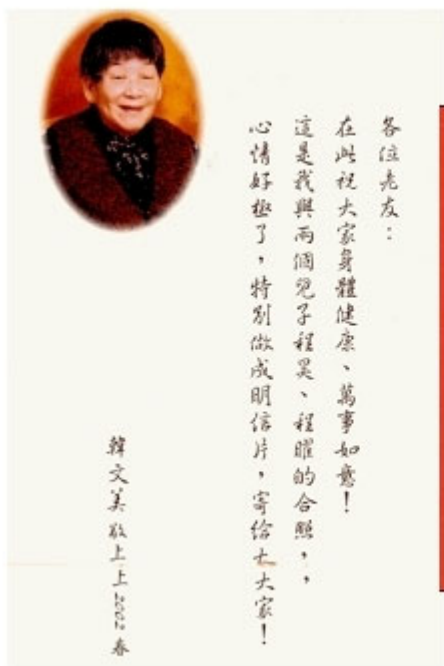 各位老友：
在此祝大家身體健康、萬事如意！
這是我與兩個兒子程昊、程曜的合照，，
心情好極了，特別做成明信片，寄給大大家！
韓文美敬上上2002春